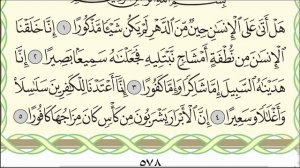 هَلْ أَتَىٰ عَلَى ٱلْإِنسَٰنِ حِينٌ مِّنَ ٱلدَّهْرِ لَمْ يَكُن شَيْـًٔا مَّذْكُورًا ١ إِنَّا خَلَقْنَا
ٱلْإِنسَٰنَ مِن نُّطْفَةٍ أَمْشَاجٍ نَّبْتَلِيهِ فَجَعَلْنَٰهُ سَمِيعًۢا بَصِيرًا ٢ إِنَّا
هَدَيْنَٰهُ ٱلسَّبِيلَ إِمَّا شَاكِرًا وَإِمَّا كَفُورًا ٣ إِنَّآ أَعْتَدْنَا لِلْكَٰفِرِينَ سَلَٰسِلَا۟
وَأَغْلَٰلًا وَسَعِيرًا ٤ إِنَّ ٱلْأَبْرَارَ يَشْرَبُونَ مِن كَأْسٍ كَانَ مِزَاجُهَا كَافُورًا ٥
٥٧٨